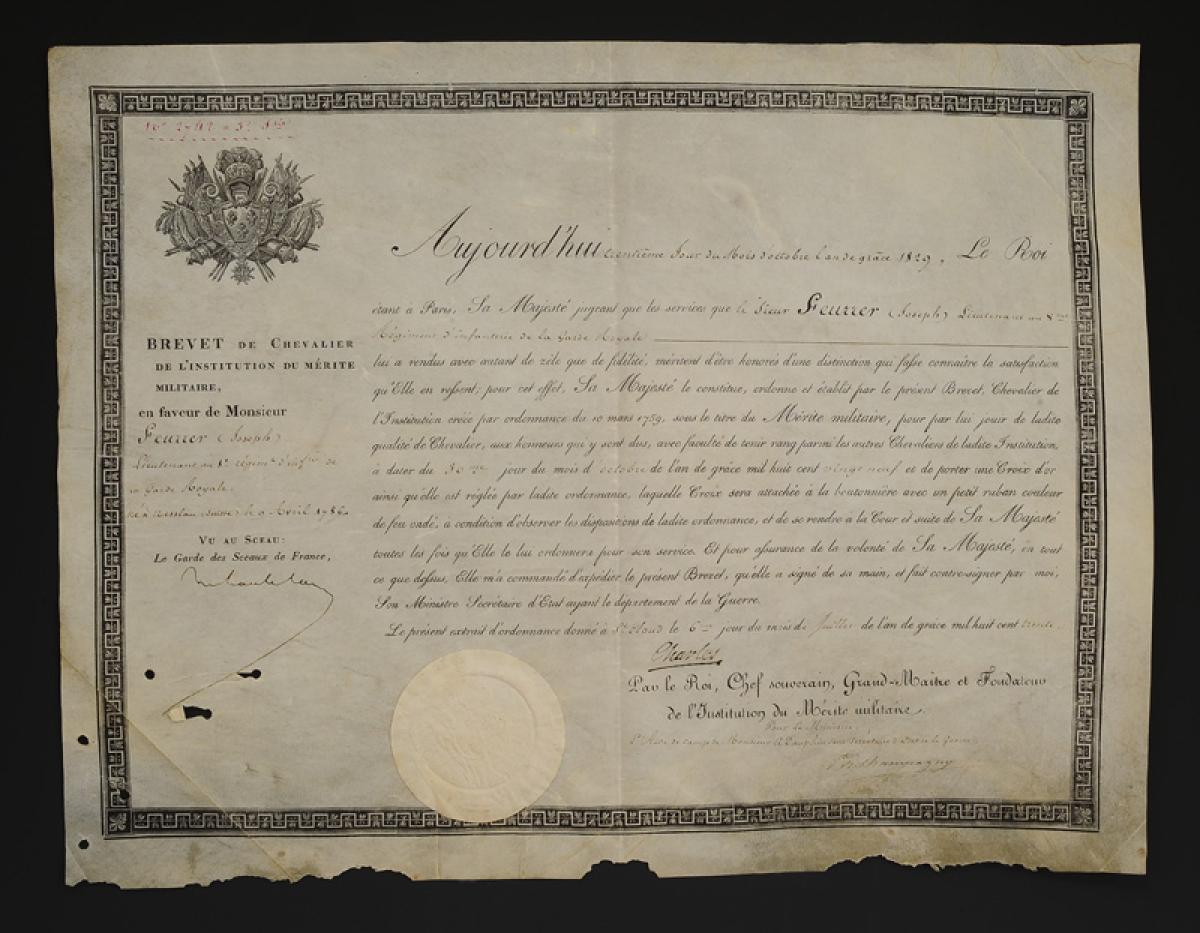 BREVET DE CHEVALIER
DE L'INSTITUTION DU MÉRITE
MILITAIRE,
en faveur de Monsieur
Feurrer (Joseph)
Lieutenant au 8e. régimt. d'infrie. de
la Garde Royale.
VU AU SCEAU:
Le Garde des Sceaux de France,
Aujourd'hui trentième Jour du Mois d'octobre l'an de grâce 1829, Le Roi
étant à Paris, Sa Majesté jugeant que les services que le Sieur Feurrer (Joseph) Lieutenant au 8me
Régiment d'infanterie de la Garde Royale
lui a rendus avec autant de zèle que de fidélité, méritent d'être honorés d'une distinction qui fasse connaître la satisfaction
qu'Elle en ressent; pour cet effet, Sa Majesté le constitue, ordonne et établit par le présent Brevet, Chevalier de
l'Institution créée par ordonnance du 10 mars 1759, sous le titre du Mérite militaire, pour par lui jouir de ladite
qualité de Chevalier, aux honneurs qui y sont dus, avec faculté de tenir rang parmi les autres Chevaliers de ladite Institution,
à dater du 30me jour du mois d'octobre de l'an de grâce mil huit cent vingt neuf et de porter une Croix d'or
ainsi qu'elle est réglée par ladite ordonnance, laquelle Croix sera attachée à la boutonnière avec un petit ruban couleur
de feu ondé, à condition d'observer les dispositions de ladite ordonnance, et de se rendre à la Cour et suite de Sa Majesté
toutes les fois qu'Elle le lui ordonnera pour son service. Et pour assurance de la volonté de Sa Majesté, en tout
ce que dessus, Elle m'a commandé d'expédier le présent Brevet, qu'elle a signé de sa main, et fait contre-signer par moi,
Son Ministre Secrétaire d'Etat ayant le département de la Guerre.
Le présent extrait d'ordonnance donné à St. Cloud le 6me jour du mois de Juillet de l'an de grâce mil huit cent trente.
Charles
Par le Roi, Chef souverain, Grand-Maître et Fondateur
de l'Institution du Mérite militaire.
Pour le Ministre,